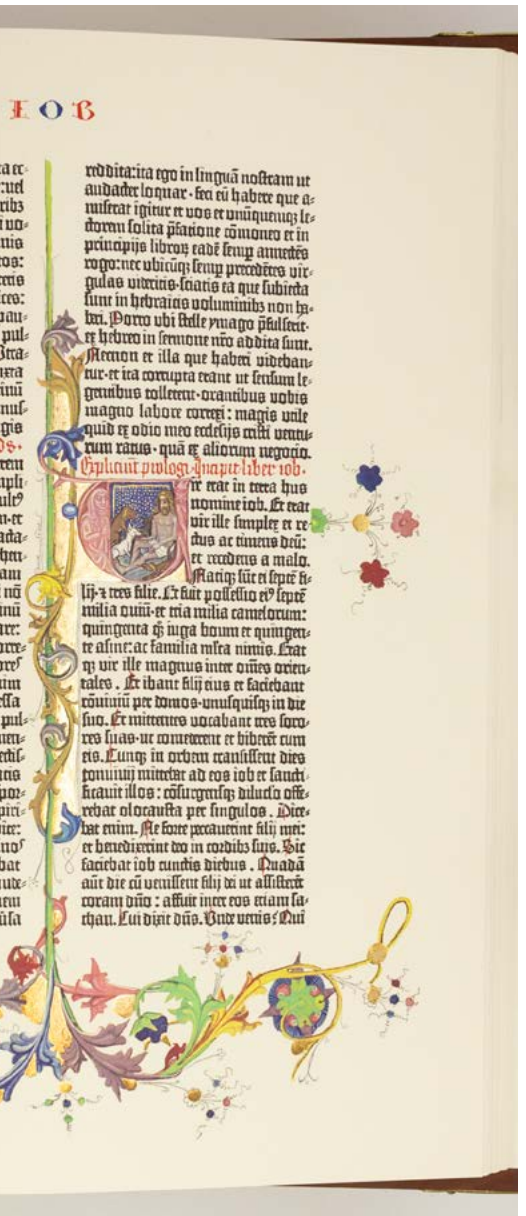 IOB
:uel
ribꝫ
nis
eos:
ces:
pul-
ꝛem
bat
reddita: ita ego in linguā nostram ut
audacter loquar · feci eū habere que a-
miserat igitur et vos et unūquemqꝫ le-
ctorem solita p̄fatione cōmoneo et in
principijs libroꝝ eadē semꝑ annectēs
rogo: nec ubicūqꝫ semꝑ precedētes vir-
gulas videritis · sciatis ea que subiecta
sunt in hebraicis voluminibꝫ non ha-
beri. Porro ubi stelle ymago p̄fulserit ·
ex hebreo in sermone nr̄o addita sunt.
Necnon et illa que haberi videban-
tur · et ita corrupta erant ut sensum le-
gentibus tollerent · orantibus vobis
magno labore correxi: magis utile
quid ex odio meo ecclesijs cristi ventu-
rum ratus · quā ex aliorum negocio.
Explicit prologꝰ · Incipit liber iob ·
Vir erat in terra hus
nomine iob. Et erat
vir ille simplex et re-
ctus ac timens deū:
et recedens a malo.
Natiqꝫ sūt ei septē fi-
lij · ⁊ tres filie. Et fuit possessio eiꝰ septē
milia ouiū · et tria milia camelorum:
quingenta qꝫ iuga boum et quingen-
te asine: ac familia multa nimis. Erat
qꝫ vir ille magnus inter om̄es orien-
tales. Et ibant filij eius et faciebant
cōuiuiū per domos · unusquisqꝫ in die
suo. Et mittentes vocabant tres soro-
res suas · ut comederent et biberēt cum
eis. Cumqꝫ in orbem transissent dies
conuiuij mittebat ad eos iob et sancti-
ficauit illos: cōsurgensqꝫ diluculo offe-
rebat olocausta per singulos. Dice-
bat enim. Ne forte peccauerint filij mei:
et benedixerint deo in cordibꝫ suis. Sic
faciebat iob cunctis diebus. Quadā
aūt die cū venissent filij dei ut assisterēt
coram dn̄o: affuit inter eos etiam sa-
than. Cui dixit dn̄s. Unde venis? Qui